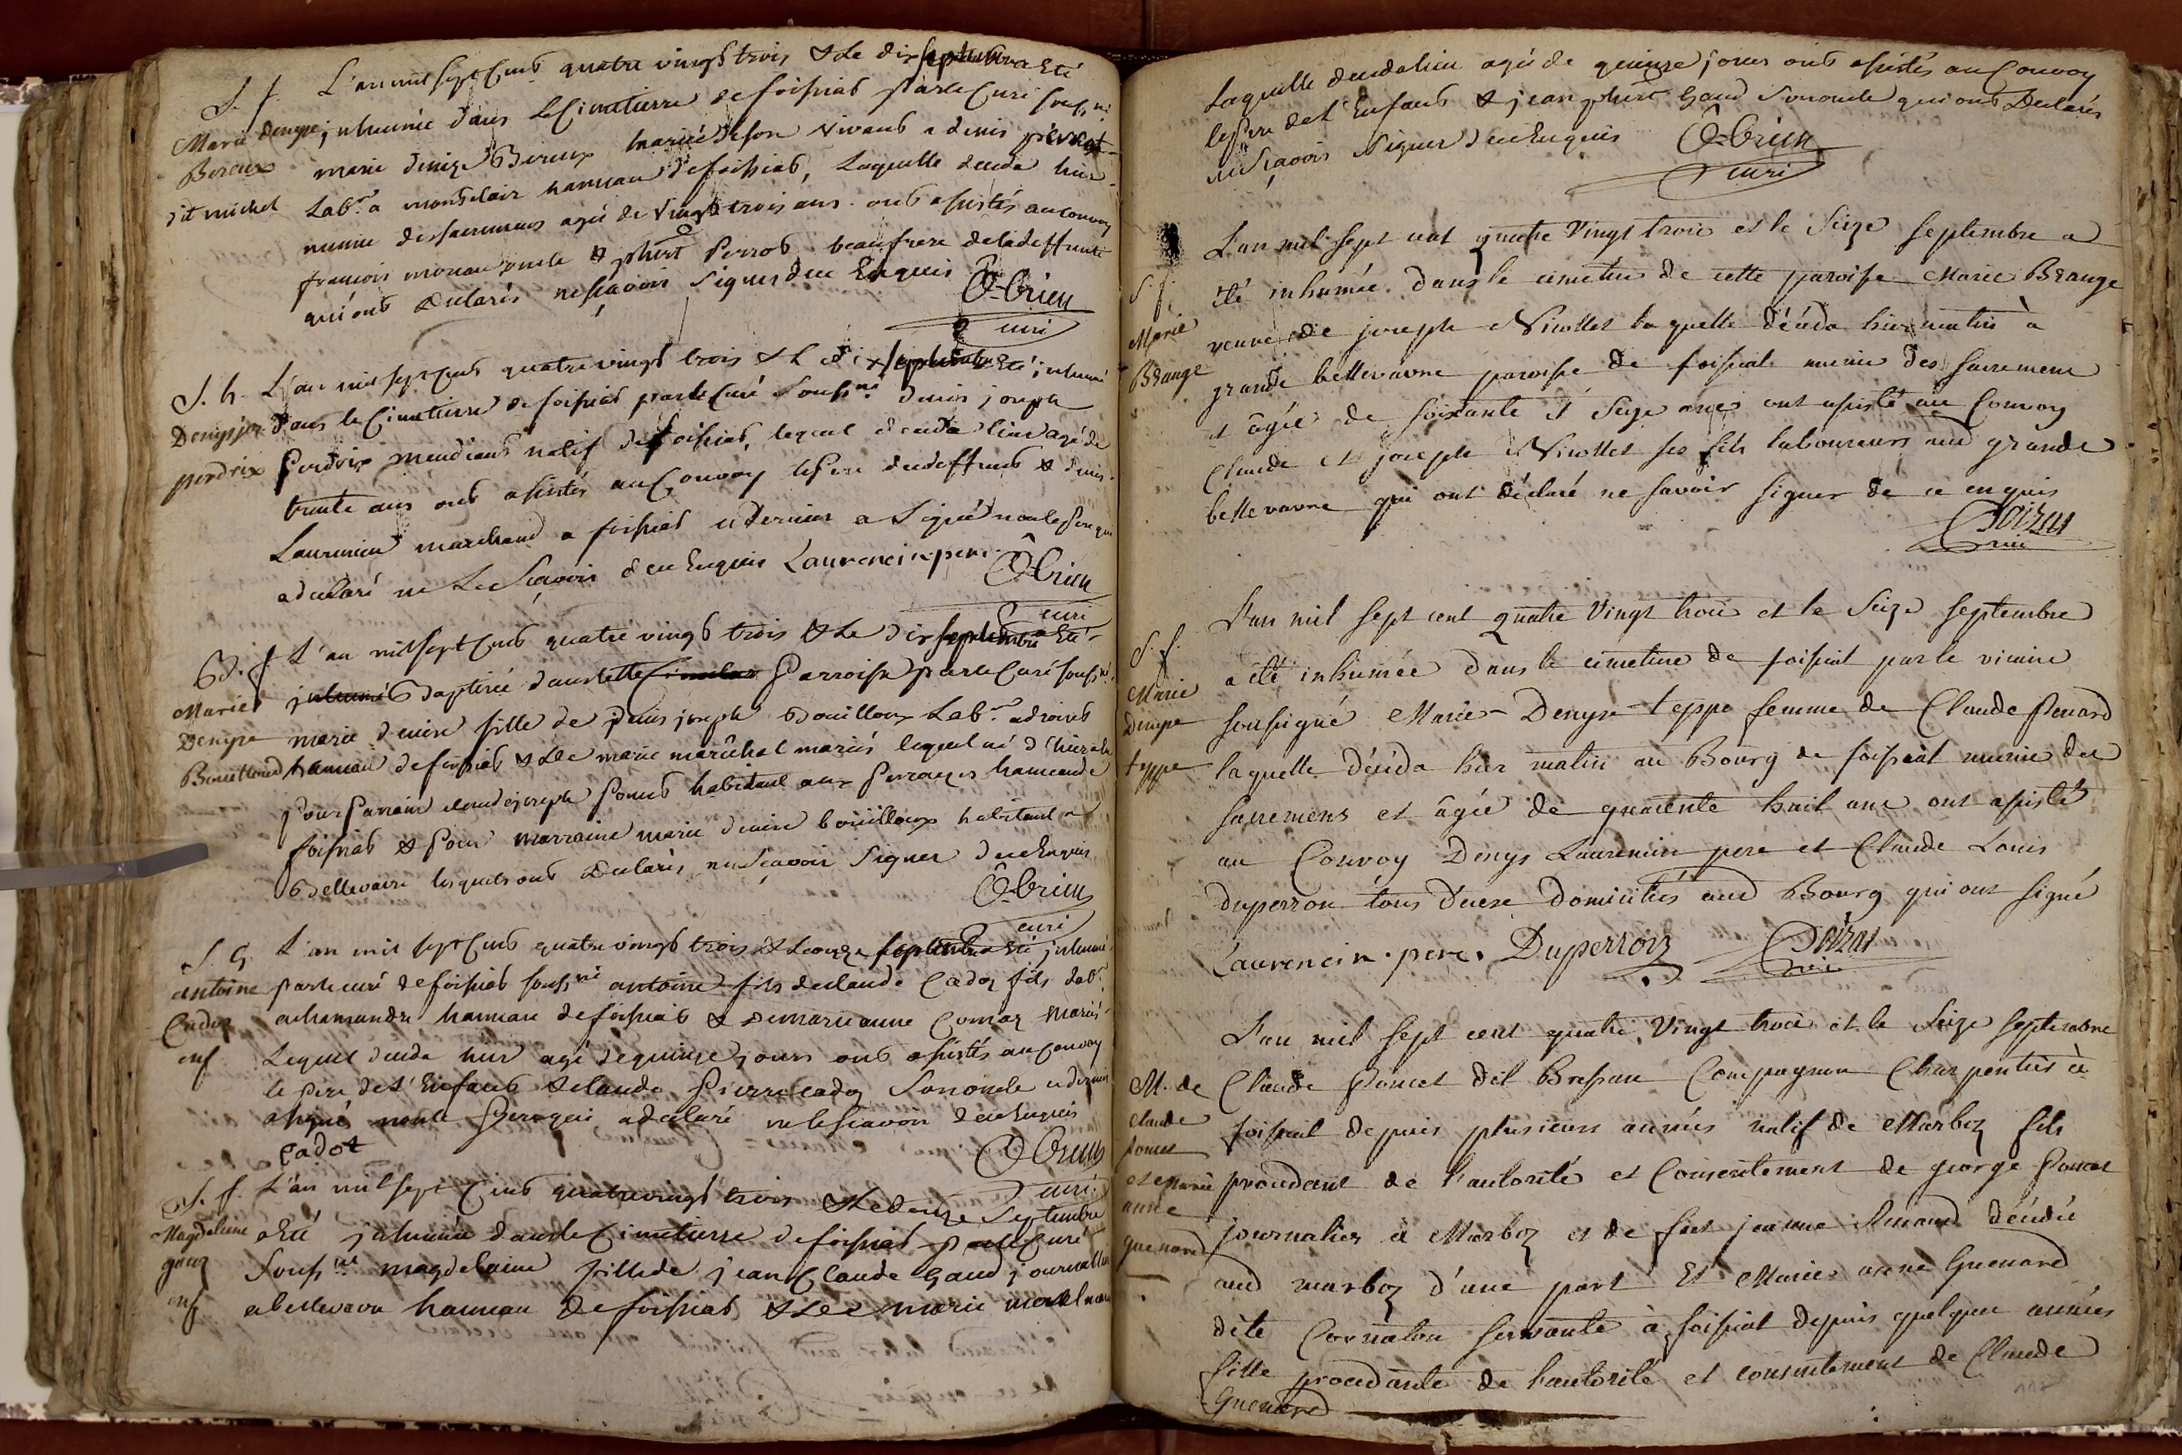 S. f. L'an mil sept Cens quatre vingts trois & Le dix septembre a Eté
Marie denyse inhumée dans Le Cimetierre de foissiat par le Curé souss.né
Bereux marie denize Bereux mariée de son vivant a denis pernet
dit michel Lab.r a montclair hameau de foissiat, Laquelle deceda hier
munie des sacremens agée de vingt trois ans. ont assistés au convoy
françois moreau oncle & phert Perrod beaufrere de la deffunte
qui ont declarés ne sçavoir signer de ce Enquis Ô-brien
curé
S. h. L'an mil sept Cens quatre vingts trois & Le dix septembre a Eté inhumé
Denys jph dans le Cimetierre de foissiat par le Curé souss.né denis joseph
perdrix Perdrix mendiant natif de foissiat, lequel deceda hier agé de
trente ans ont assistés au Convoy le Pere du deffunt & denis
Laurencin marchand a foissiat ce dernier a signé non le Pere qui
a declaré ne Le Sçavoir de ce Enquis Laurencin pere Ô-brien
curé
B. f L'an mil sept Cens quatre vingts trois & Le dix septembre a Eté
Marie inhumé baptisée dans cette Cimetier Parroisse par le Curé souss.né
Denyse marie denise fille de denis joseph Bouilloux Lab.r a droist
Bouilloud hameau de foissiat & de marie maréchal mariés lequel né d'hier a eu
Pour Parrain claude joseph Poncet habitant aux Perrozes hameau de
foissiat & Pour marraine marie denise bouilloux habitant a
Bellevavre lesquels ont declarés ne sçavoir signer de ce Enquis
Ô-brien
curé
S. G. L'an mil sept Cens quatre vingts trois & Le onze septembre a Eté inhumé
antoine par le curé de foissiat souss.né antoine fils de claude Cadoz fils Lab.r
Cadoz a chamandre hameau de foissiat & de marie anne Comaz mariés
enf Lequel deceda hier agé de quinze jours ont assistés au convoy
le Pere de L'Enfant & claude Pierre cadoz son oncle ce dernier
a signé non le Pere qui a declaré ne le sçavoir de ce Enquis
Cadot Ô-brien
curé
S. f. L'an mil sept Cens quatre vingts trois & Le douze Septembre
Magdeleine a Eté inhumée dans le Cimetierre de foissiat par le Curé
gauz Souss.né magdelaine fille de jean Claude Gaud journallier
enf a bellevavre hameau de foissiat & de marie morel mariés
Laquelle deceda hier agée de quinze jours ont assistés au Convoy
le Pere de L'Enfant & jean phert Gaud son oncle qui ont Declarés
ne Sçavoir Signer de ce Enquis Ô-brien
curé
L'an mil sept cent quatre Vingt trois et le Seize septembre a
S. f. été inhumée dans le cimetiere de cette paroisse Marie Brange
Marie veuve de joseph Nicollet laquelle déceda hier matin à
Brange grande bellevavre paroisse de foissiat munie des sacremens
et âgée de soixante et Seize ans ont assisté au Convoy
Claude et joseph Nicollet ses fils laboureurs aud grande
bellevavre qui ont déclaré ne savoir signer de ce enquis
Goizat
vic
L'an mil sept cent quatre Vingt trois et le Seize septembre
S. f. a été inhumée dans le cimetiere de foissiat par le vicaire
Marie Denyse soussigné Marie-Denyse teppe femme de Claude Penard
teppe laquelle déceda hier matin au Bourg de foissiat munie des
sacremens et âgée de quarente huit ans ont assisté
au Convoy Denys Laurencin pere et Claude Louis
Duperron tous deux Domiciliés aud Bourg qui ont signé
Laurencin . pere . Duperron Goizat
vic
L'an mil sept cent quatre Vingt trois et le Seize septembre
M. de Claude Poncet dit Bressan Compagnon Charpentier à
Claude Poncet foissiat depuis plusieurs années natif de Marboz fils
et Marie procedant de l'autorité et Consentement de george Poncet
anne journalier à Marboz et de fut jeanne Renard décédée
guenard aud marboz d'une part Et Marie anne Guenard
dite Cornaton servante à foissiat depuis quelques années
fille procedante de l'autorité et consentement de Claude
Guenard